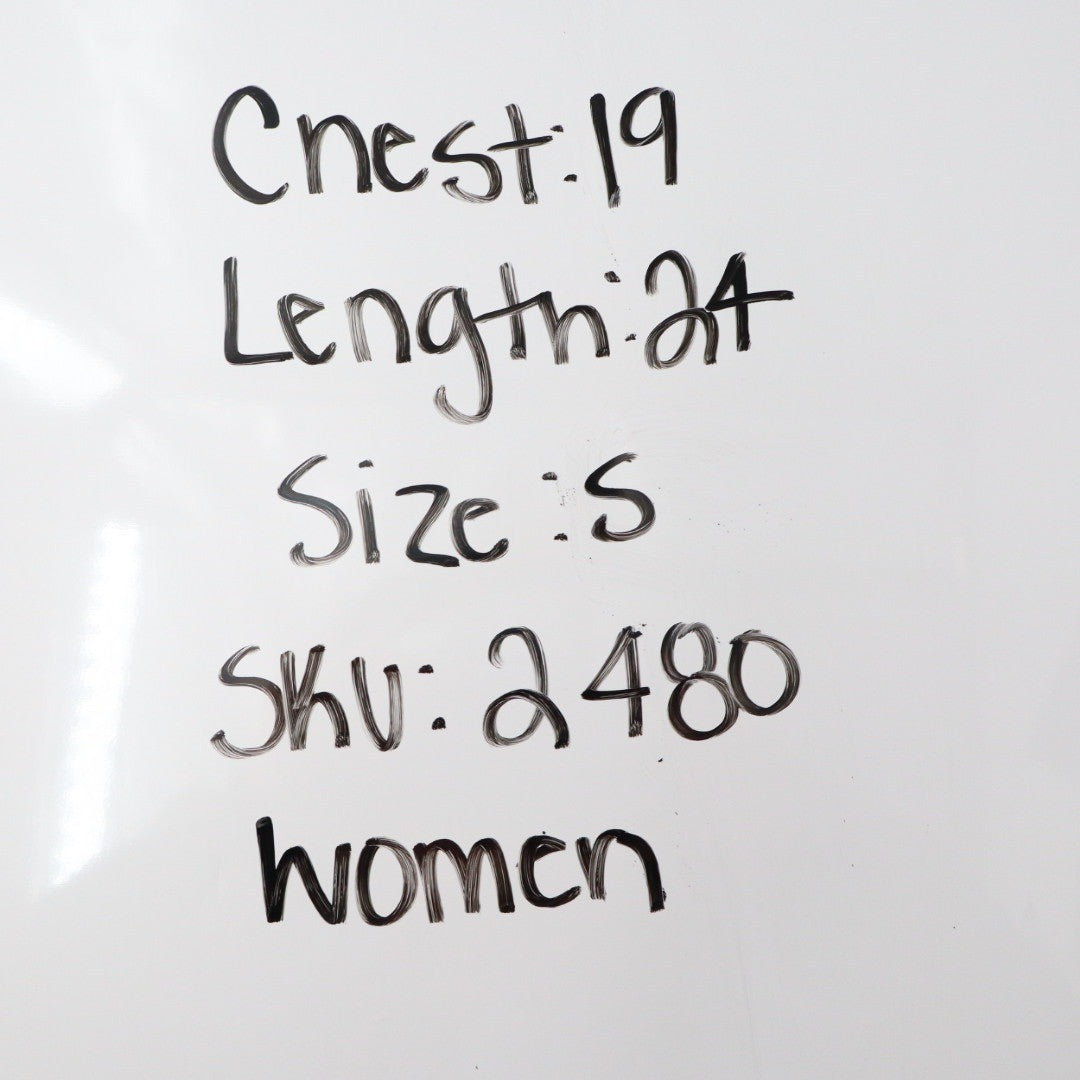 Chest:19
Length:24
Size:S
SKU: 2480
Women